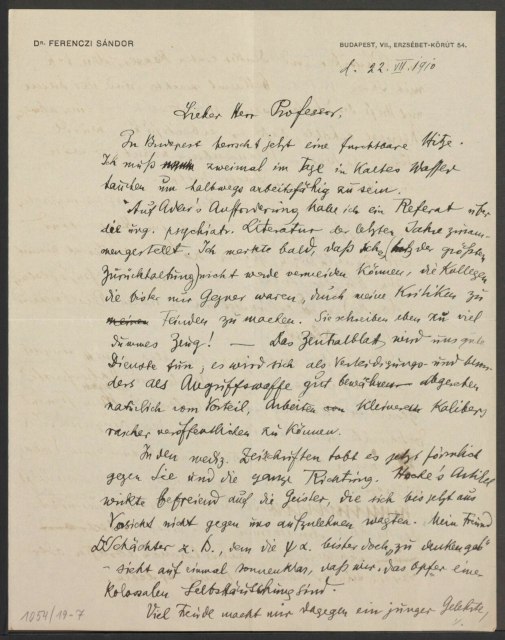 DR. FERENCZI SÁNDOR
BUDAPEST, VII., ERZSÉBET-KÖRÚT 54.
d. 22. VII. 1910
Lieber Herr Professor,
In Budapest herrscht jetzt eine furchtbare Hitze.
Ich muß zweimal im Tage in kaltes Wasser
tauchen um halbwegs arbeitsfähig zu sein.
Auf Adler's Aufforderung habe ich ein Referat über
die ung. psychiatr. Literatur der letzten Jahre zusam-
mengestellt. Ich merkte bald, daß ich, der größten
Zurückhaltung nicht werde vermeiden können, die Kollegen
die bisher nur Gegner waren, durch meine Kritiken zu
Feinden zu machen. Sie schreiben eben zu viel
dummes Zeug! — Das Zentralblatt wird uns gute
Dienste tun; es wird sich als Verteidigungs- und beson-
ders als Angriffswaffe gut bewähren abgesehen
natürlich vom Vorteil, Arbeiten kleineren Kalibers
rascher veröffentlichen zu können.
In den mediz. Zeitschriften tobt es jetzt förmlich
gegen Sie und die ganze Richtung. Hoche's Artikel
wirkte befreiend auf die Geister, die sich bis jetzt aus
Vorsicht nicht gegen uns aufzulehnen wagten. Mein Freund
Dr Schächter z. B., dem die ψα. bisher doch „zu denken gab"
- sieht auf einmal sonnenklar, daß wir das Opfer einer
kolossalen Selbsttäuschung sind.
Viel Freude macht mir dagegen ein junger Gelehrte,
1054/19-7